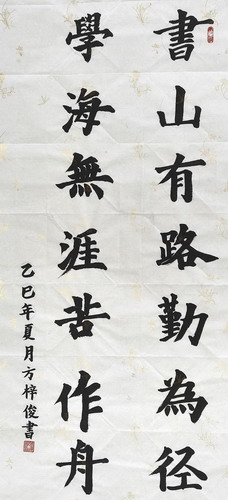 書山有路勤為径
學海無涯苦作舟
乙巳年夏月方梓俊書